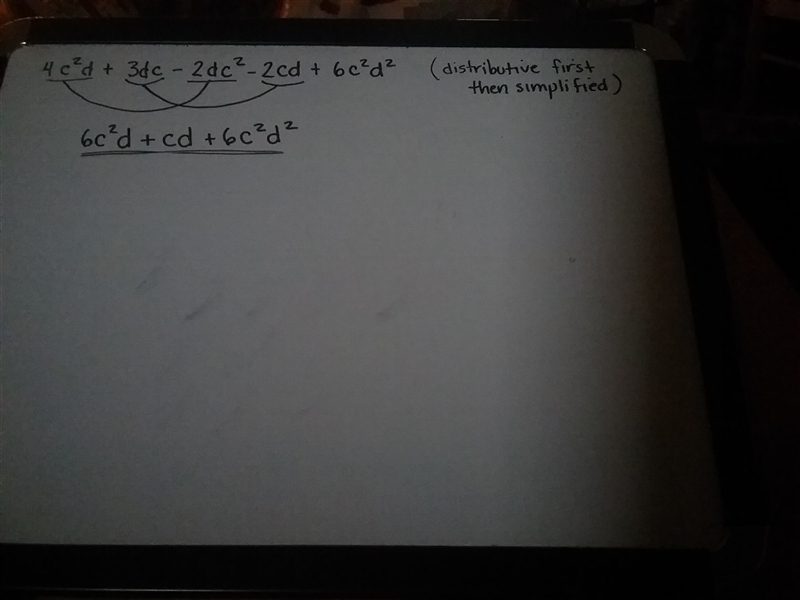 4c²d + 3dc - 2dc² - 2cd + 6c²d² (distributive first
then simplified)
6c²d + cd + 6c²d²